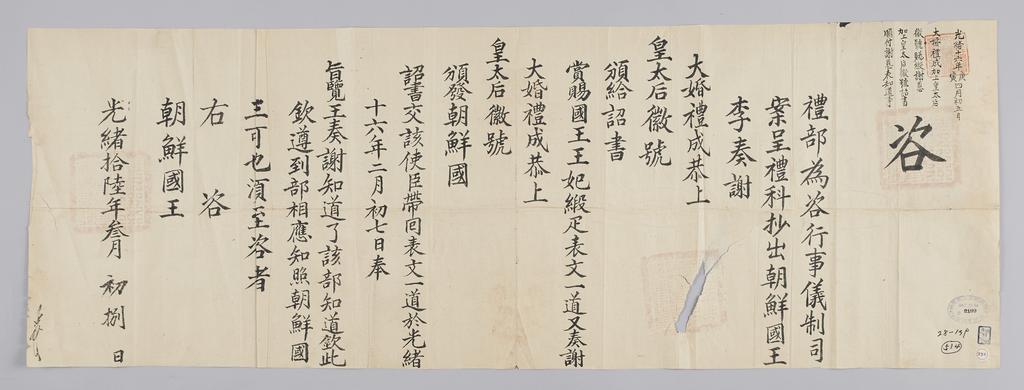 光緒十六年庚寅四月初五日
大婚禮成加上皇太后
徽號賜緞謝恩
加上皇太后徽號詔書
順付謝恩表知道事
咨
禮部為咨行事儀制司
案呈禮科抄出朝鮮國王
李奏謝
大婚禮成恭上
皇太后徽號
頒給詔書
賞賜國王王妃緞疋表文一道又奏謝
大婚禮成恭上
皇太后徽號
頒發朝鮮國
詔書交該使臣帶回表文一道於光緒
十六年二月初七日奉
旨覽王奏謝知道了該部知道欽此
欽遵到部相應知照朝鮮國
王可也須至咨者
右咨
朝鮮國王
光緒拾陸年叁月初捌日
514